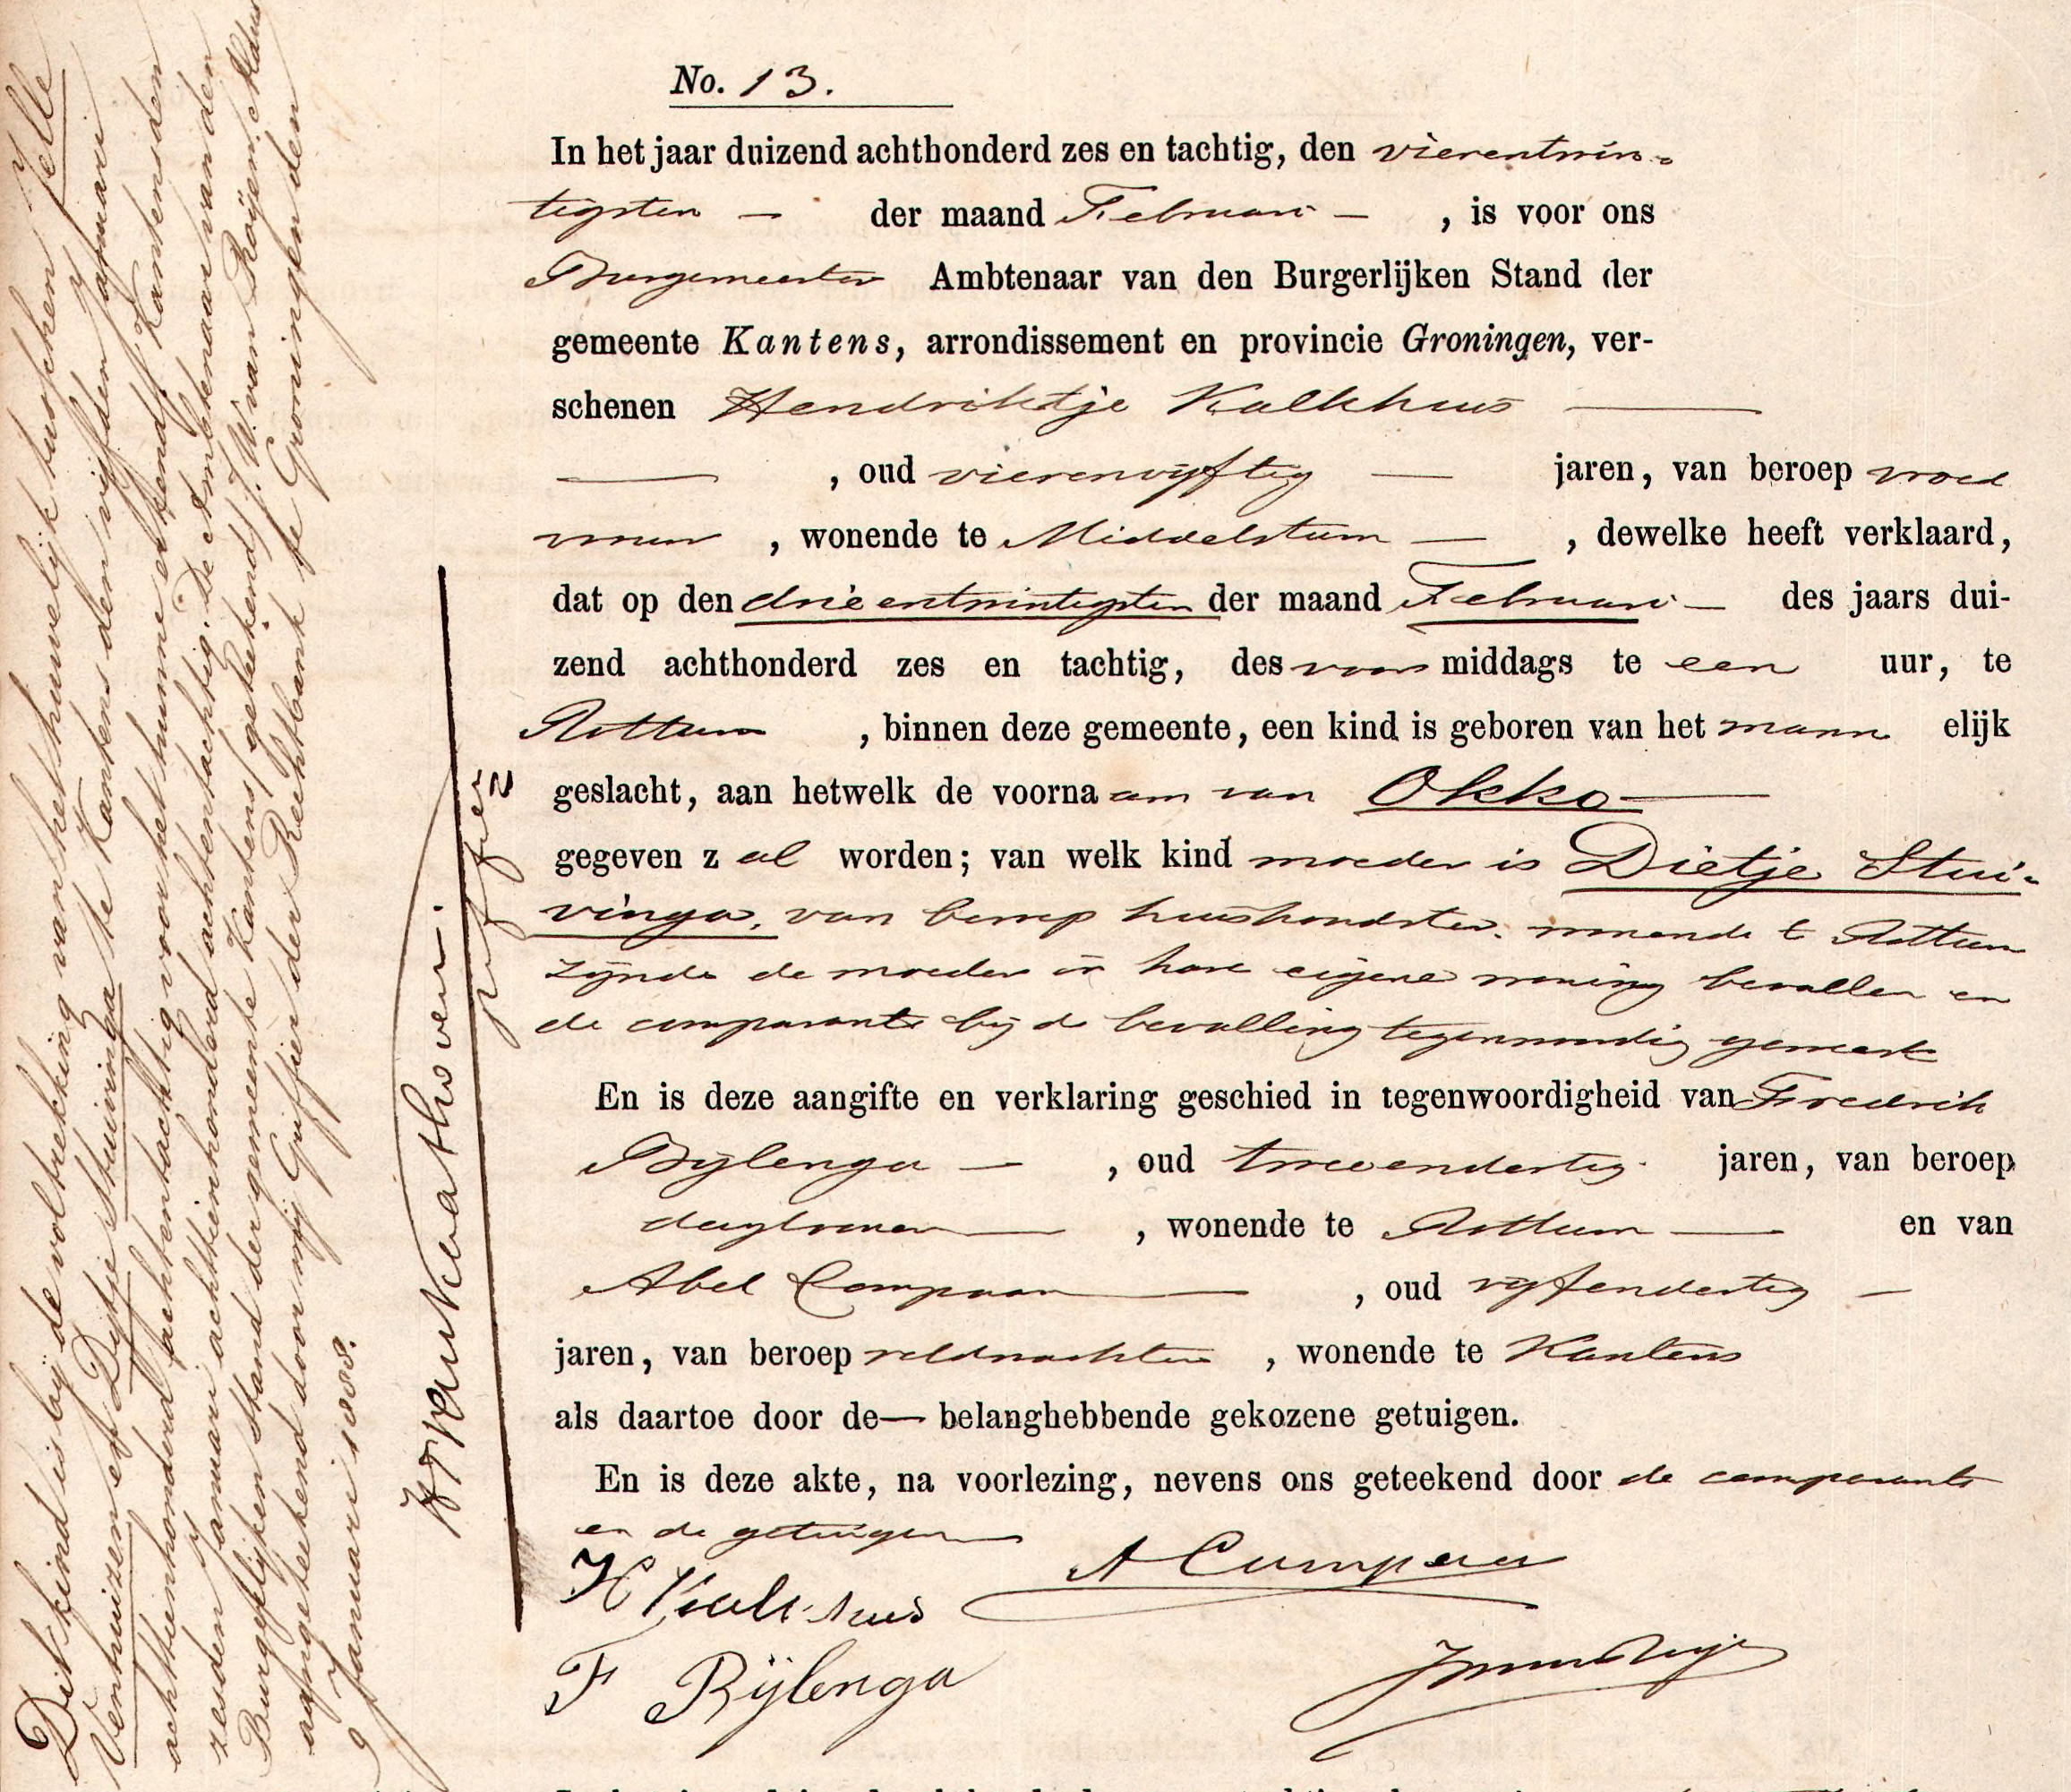 No. 13.
In het jaar duizend achthonderd zes en tachtig, den vierentwin-
tigsten — der maand Februari — , is voor ons
Burgemeester Ambtenaar van den Burgerlijken Stand der
gemeente Kantens, arrondissement en provincie Groningen, ver-
schenen Hendriktje Kalkhuis —
— , oud vierenvijftig — jaren, van beroep vroed
vrouw , wonende te Middelstum — , dewelke heeft verklaard,
dat op den drieentwintigsten der maand Februari — des jaars dui-
zend achthonderd zes en tachtig, des voormiddags te een uur, te
Rottum , binnen deze gemeente, een kind is geboren van het mann elijk
geslacht, aan hetwelk de voornaam van Okko —
gegeven zal worden; van welk kind moeder is Dietje Stui-
vinga, van beroep huishoudster, wonende te Rottum
zijnde de moeder in hare eigene woning bevallen en
de comparante bij de bevalling tegenwoordig geweest
En is deze aangifte en verklaring geschied in tegenwoordigheid van Frederik
Bijlenga — , oud tweeendertig jaren, van beroep
daglooner — , wonende te Rottum — en van
Abel Compaan — , oud vijfendertig —
jaren, van beroep veldwachter , wonende te Kantens
als daartoe door de — belanghebbende gekozene getuigen.
En is deze akte, na voorlezing, nevens ons geteekend door de comparante
en de getuigen —
H Kalkhuis
A Compaan
F Bijlenga
Dit kind is bij de voltrekking van het huwelijk tusschen Jelle
Venhuizen en Dijtje Stuivinga te Kantens den vijfden Januari
achttienhonderd achtentachtig voor het hunne erkend. Kantens den
zesden Januari achttienhonderd achtentachtig. De Ambtenaar van den
Burgerlijken Stand der gemeente Kantens, (geteekend) J. W. van Roijen. Aldus
aangeteekend door mij Griffier der Rechtbank te Groningen den
9 Januari 1888.
griffier